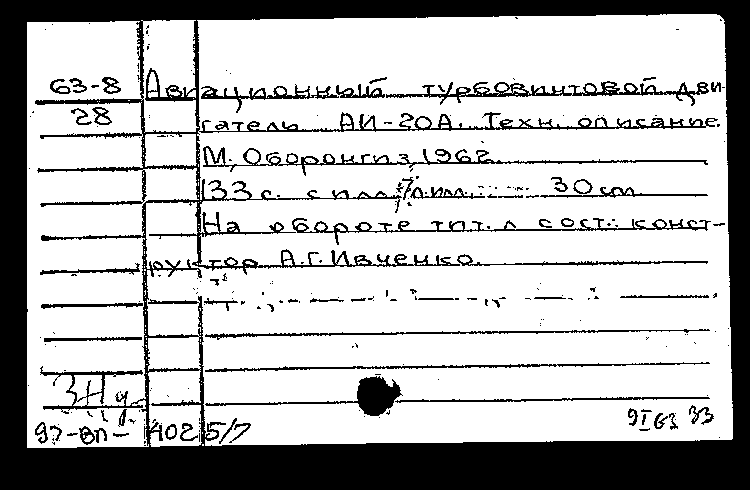 63-8 Авиационный турбовинтовой дви-
28 гатель АИ-20А. Техн. описание.
М., Оборонгиз, 1962.
133 с. с илл., 7 л. илл. 30 см
На обороте тит. л. сост.: конст-
руктор А.Г. Ивченко.
97-8П- 402 5/7